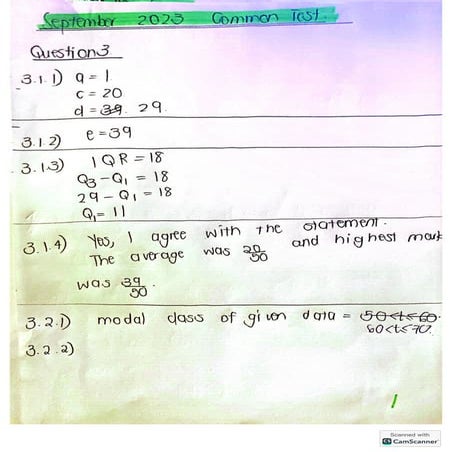 September 2023 Common Test.
Question 3
3.1.1) a = 1
c = 20
d = 39. 29.
3.1.2) e = 39
3.1.3) IQR = 18
Q3 - Q1 = 18
29 - Q1 = 18
Q1 = 11
3.1.4) Yes, I agree with the statement.
The average was 20/50 and highest mark
was 39/50.
3.2.1) modal class of given data = 50<t≤60.
60<t≤70.
3.2.2)
1
Scanned with
CS CamScanner